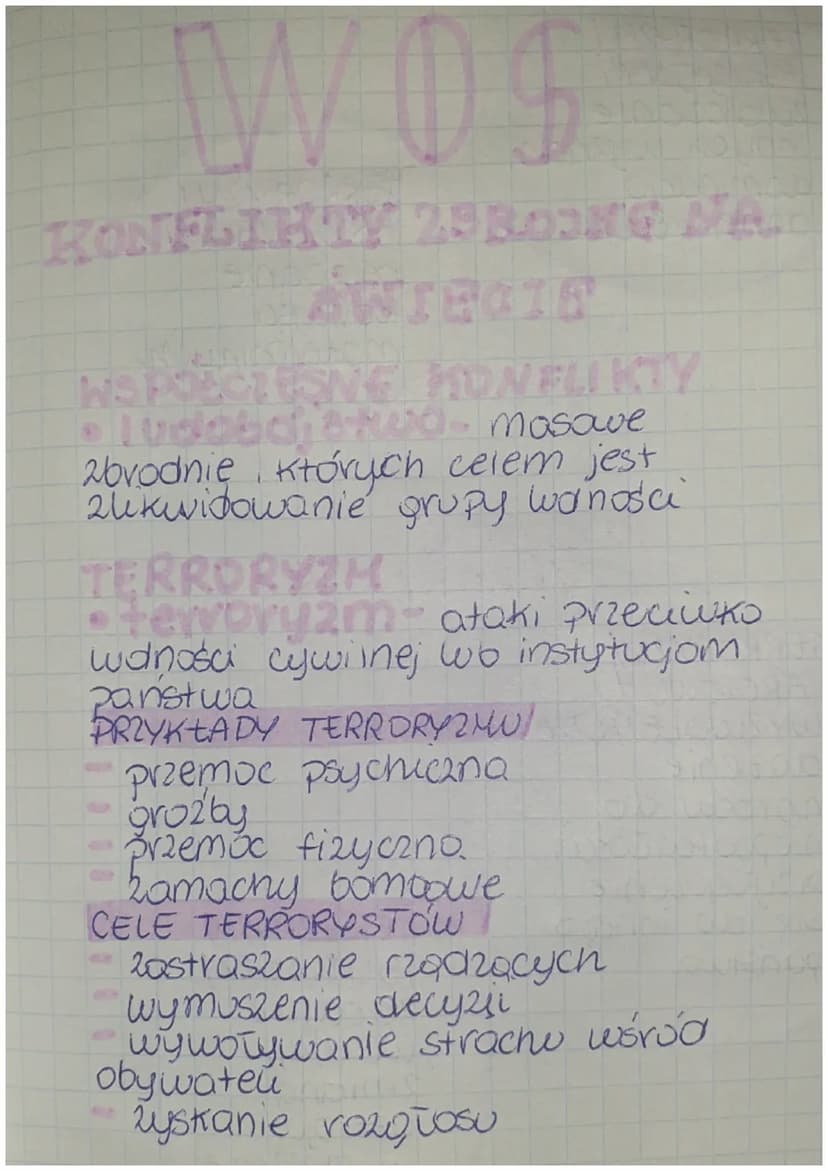 WOS
KONFLIKTY ZBROJNE NA
ŚWIECIE
WSPÓŁCZESNE KONFLIKTY
• ludobójstwo- masowe
zbrodnie, których celem jest
zlikwidowanie grupy ludności
TERRORYZM
• terroryzm- ataki przeciwko
ludności cywilnej lub instytucjom
państwa
PRZYKŁADY TERRORYZMU
- przemoc psychiczna
- groźby
- przemoc fizyczna
- zamachy bombowe
CELE TERRORYSTÓW
- zastraszanie rządzących
- wymuszenie decyzji
- wywoływanie strachu wśród
obywateli
- zyskanie rozgłosu